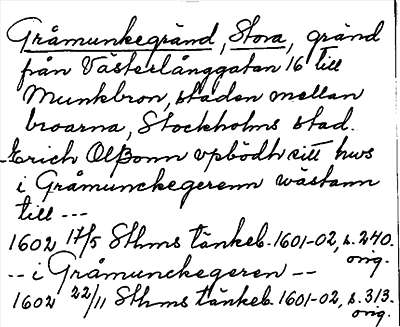 Gråmunkegränd, Stora, gränd
från Västerlånggatan 16 till
Munkbron, staden mellan
broarna, Stockholms stad.
Erich Olßonn vpbödh sitt hws
i Gråmunckegerenn wästann
till ---
1602 17/5 Sthms tänkeb. 1601-02, s. 240.
orig.
-- i Gråmunckegeren --
1602 22/11 Sthms tänkeb. 1601-02, s. 313.
orig.